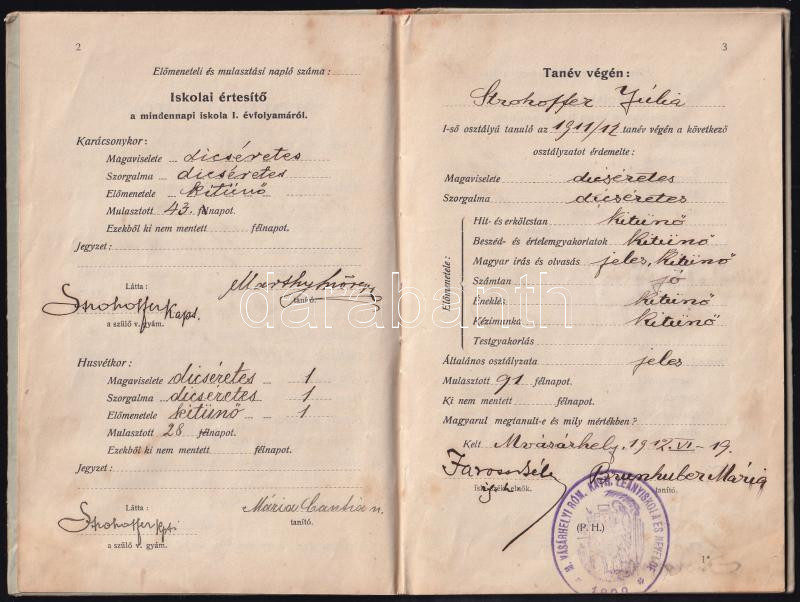 2
Előmeneteli és mulasztási napló száma :
Iskolai értesítő
a mindennapi iskola I. évfolyamáról.
Karácsonykor :
Magaviselete dicséretes
Szorgalma dicséretes
Előmenetele kitünő
Mulasztott 43. félnapot.
Ezekből ki nem mentett félnapot.
Jegyzet :
Látta :
tanító.
Strohoffer
a szülő v. gyám.
Husvétkor :
Magaviselete dicséretes 1
Szorgalma dicséretes 1
Előmenetele kitünő 1
Mulasztott 28 félnapot.
Ezekből ki nem mentett félnapot.
Jegyzet :
Látta :
Mária
tanító.
Strohoffer
a szülő v. gyám.
3
Tanév végén :
Strohoffer Júlia
I-ső osztályú tanuló az 1911/12 tanév végén a következő
osztályzatot érdemelte :
Magaviselete dicséretes
Szorgalma dicséretes
Előmenetele :
Hit- és erkölcstan kitünő
Beszéd- és értelemgyakorlatok kitünő
Magyar irás és olvasás jeles, kitünő
Számtan jó
Éneklés kitünő
Kézimunka kitünő
Testgyakorlás
Általános osztályzata jeles
Mulasztott 91 félnapot.
Ki nem mentett félnapot.
Magyarul megtanult-e és mily mértékben ?
Kelt Mvásárhely, 1912. VI. 19.
Brunhuber Mária
tanító.
(P. H.)
M. VÁSÁRHELYI RÓM. KATH. LEÁNYISKOLA ÉS
1*
darabanth